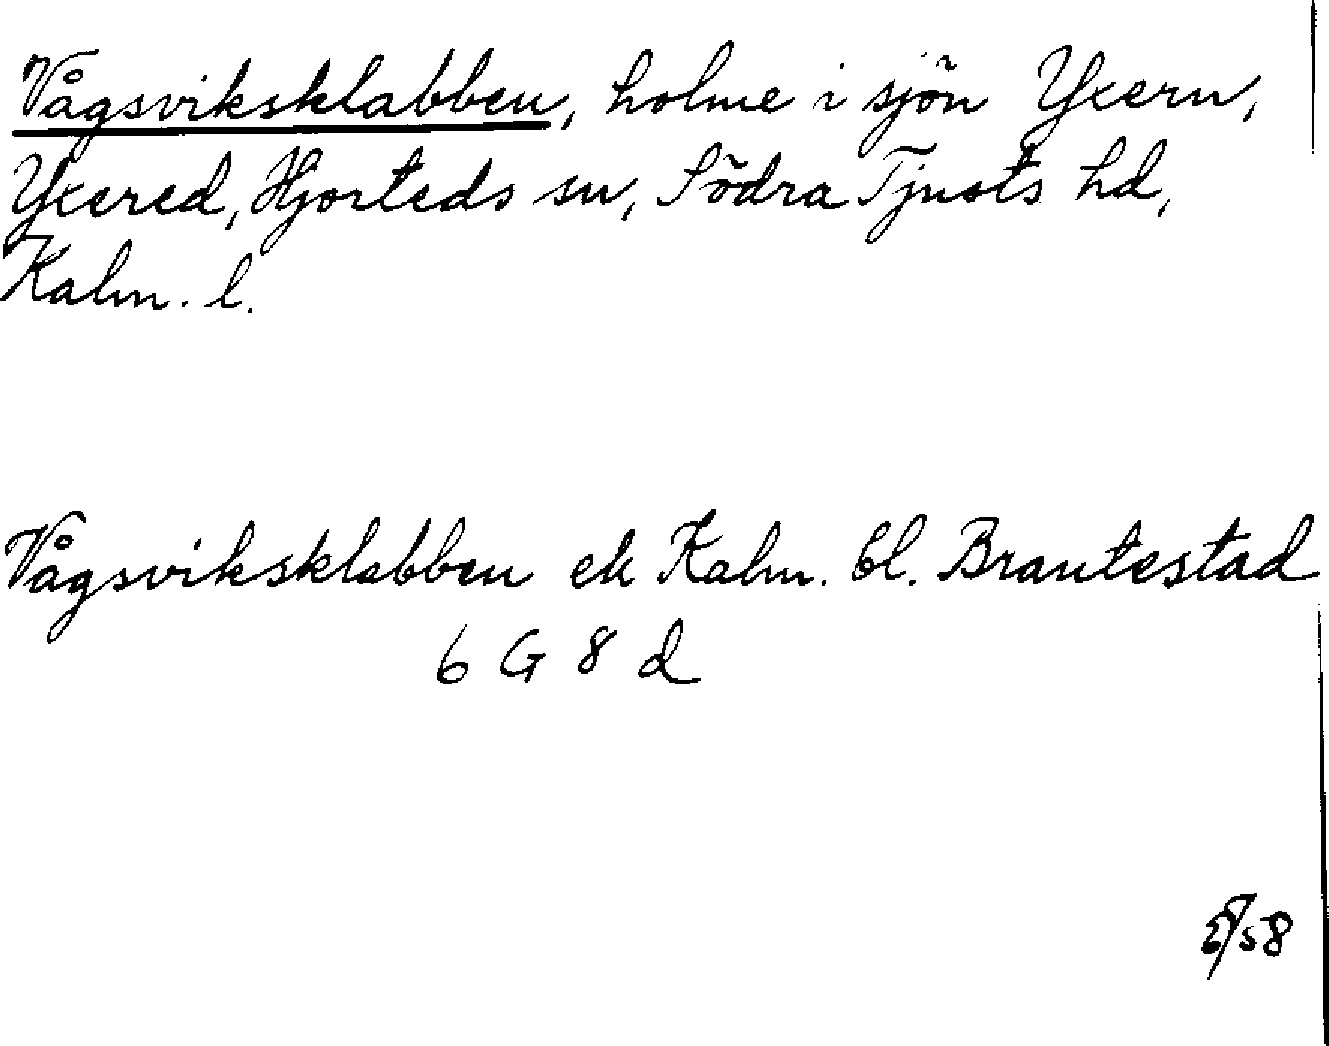 Vågsviksklabben, holme i sjön Yxern,
Yxered, Hjorteds sn, Södra Tjusts hd,
Kalm. l.
Vågsviksklabben ek Kalm. bl. Brantestad
6 G 8 d
58